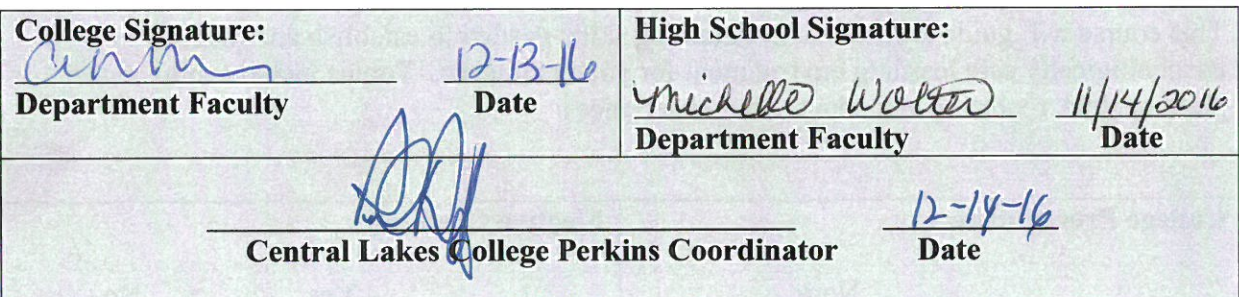 College Signature:
12-13-16
Department Faculty Date
High School Signature:
Michelle Wolter 11/14/2016
Department Faculty Date
12-14-16
Central Lakes College Perkins Coordinator Date